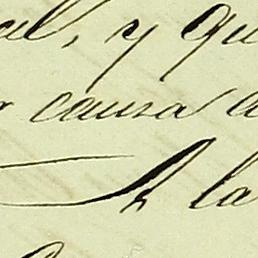 al, y qu
r causa d
A la